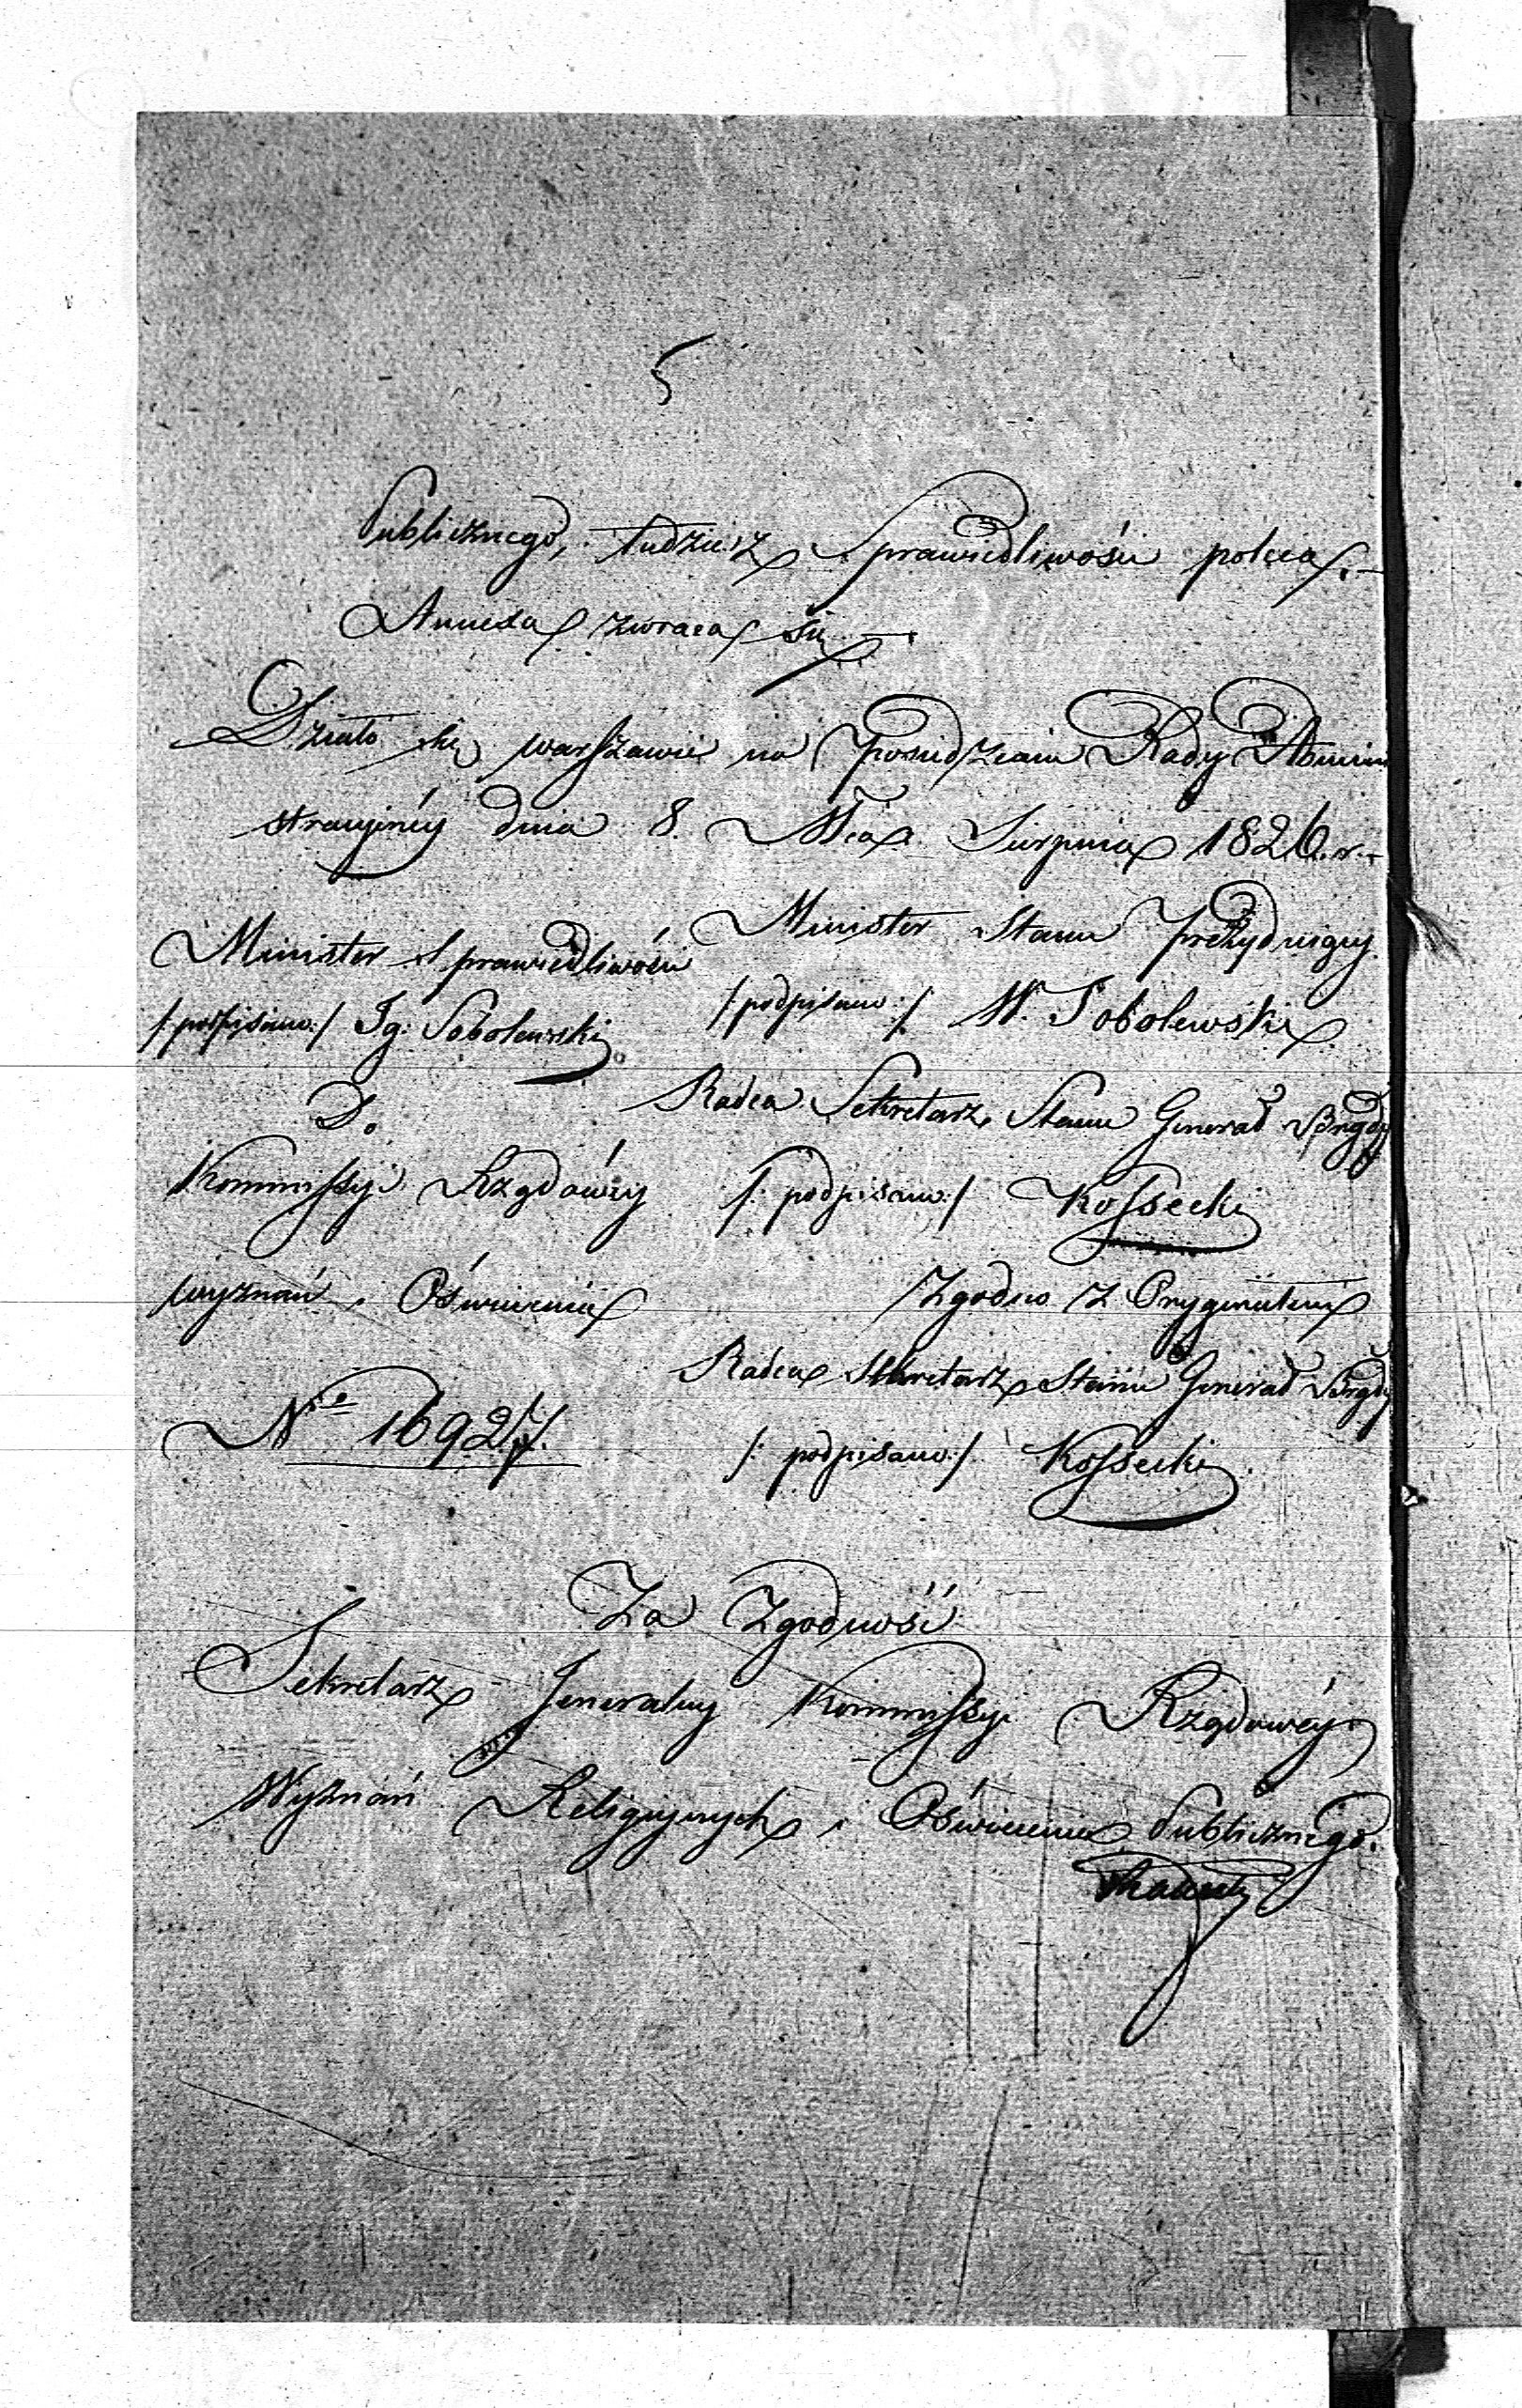 5
Publicznego, tudzież Sprawiedliwości poleca.—
Annexa zwraca się —.
Działo się w Warszawie na Posiedzeniu Rady Admini
stracyinéy dnia 8. Mca Sierpnia 1826. r.—
Minister Stanu Prezyduiący.
Minister Sprawiedliwości
/:podpisano:/ M. Sobolewski
/:podpisano:/ Ig: Sobolewski
Radca Sekretarz Stanu Generał Brygdy
Do
Kommissyi Rządowéy
/: podpisano:/ Kossecki
Wyznań i Oświecenia
Zgodno z Oryginałem
Radca Sekretarz Stanu Generał Brygdy
No 16927.
/: podpisano:/ Kossecki
Za Zgodność
Sekretarz Jeneralny Kommissyi Rządowéy
Wyznań Religiynych i Oświecenia Publicznego.